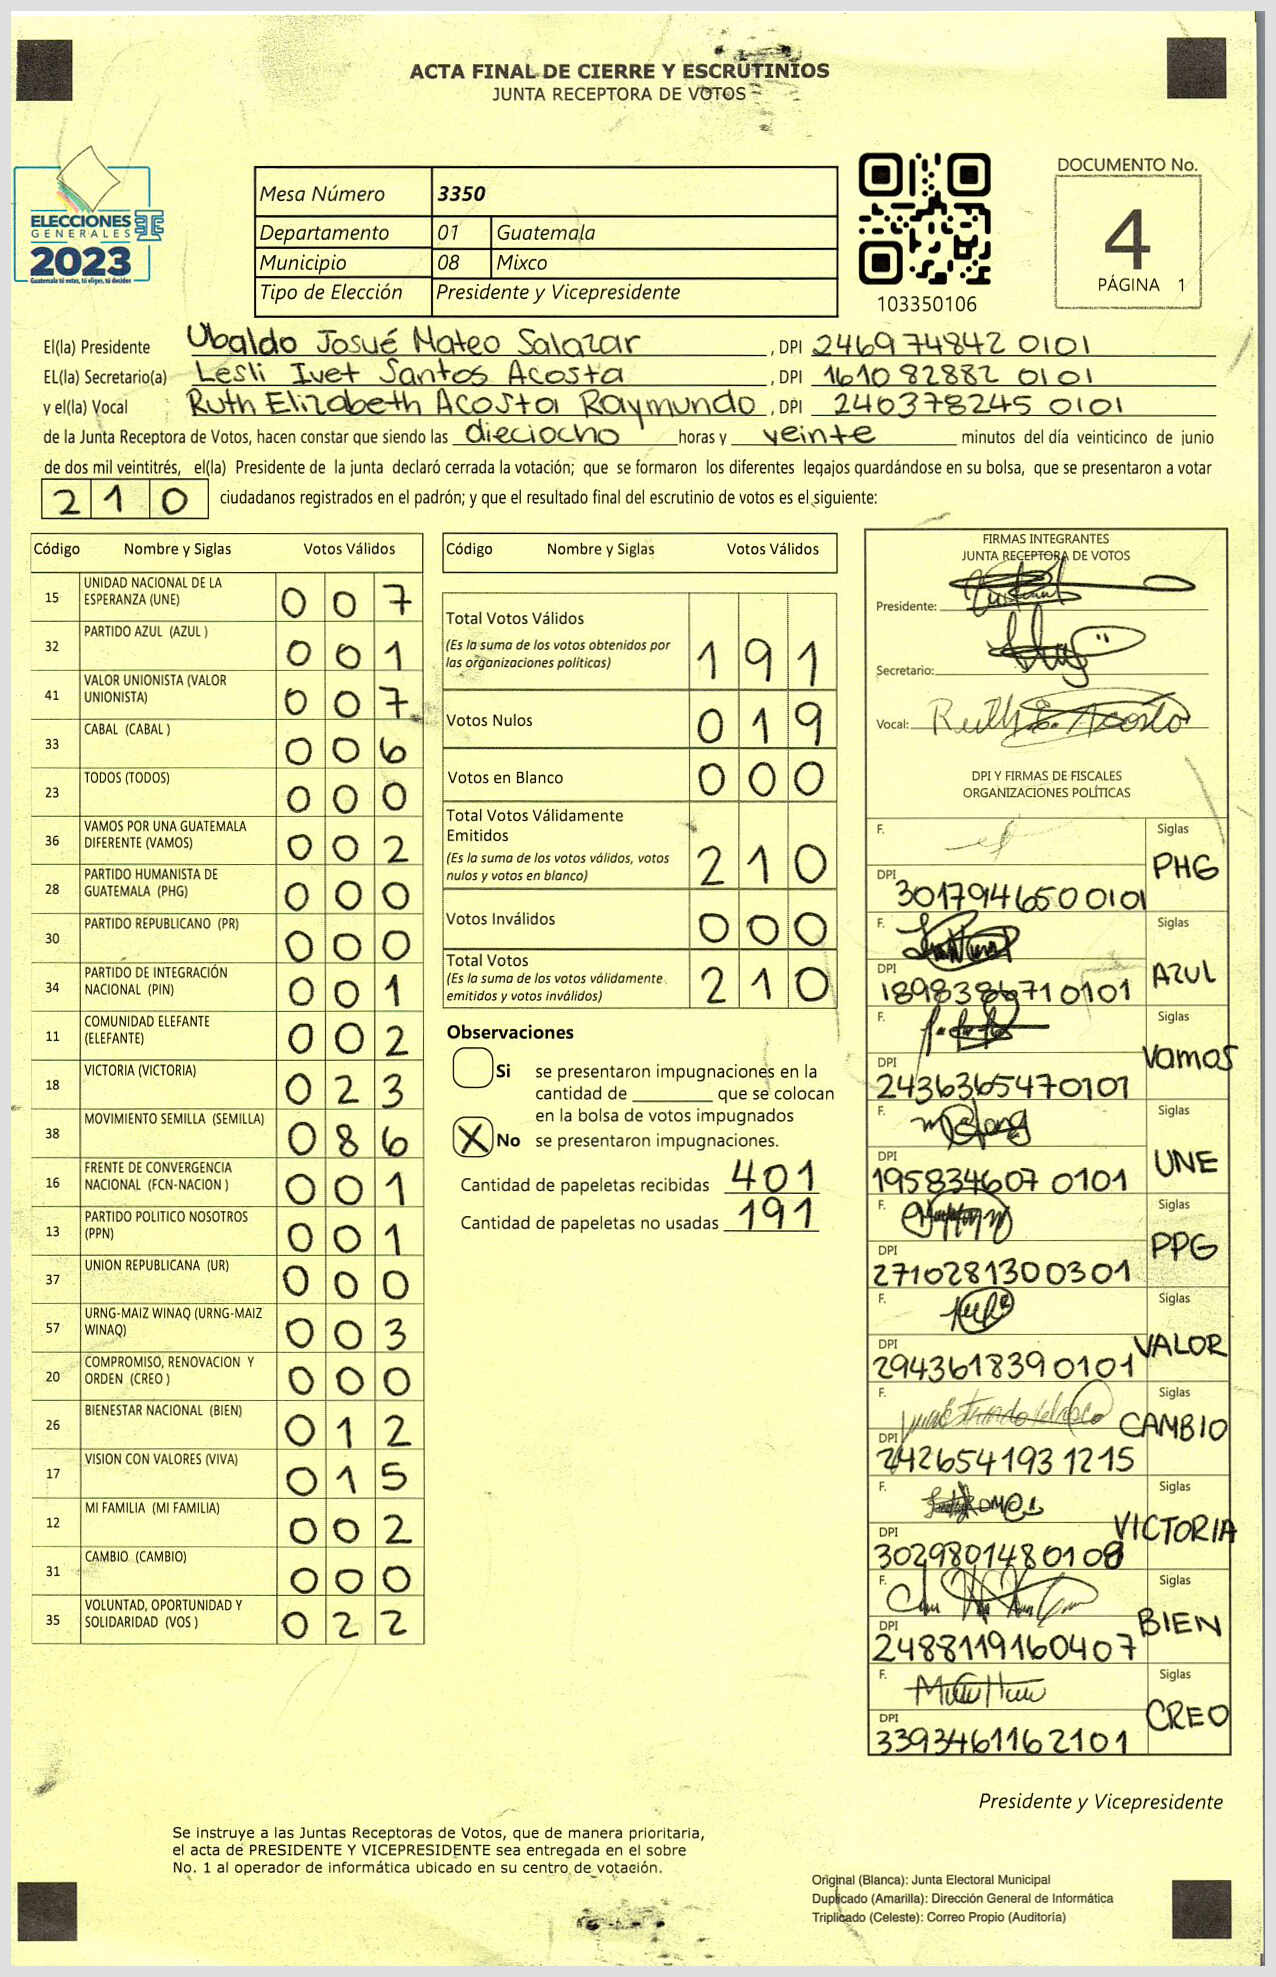 ACTA FINAL DE CIERRE Y ESCRUTINIOS
JUNTA RECEPTORA DE VOTOS
ELECCIONES
GENERALES
2023
Guatemala tú votas, tú eliges, tú decides
Mesa Número 3350
Departamento 01 Guatemala
Municipio 08 Mixco
Tipo de Elección Presidente y Vicepresidente
103350106
DOCUMENTO No.
4
PÁGINA 1
El(la) Presidente Ubaldo Josué Mateo Salazar , DPI 246974842 0101
EL(la) Secretario(a) Lesli Ivet Santos Acosta , DPI 161082882 0101
y el(la) Vocal Ruth Elizabeth Acosta Raymundo , DPI 240378245 0101
de la Junta Receptora de Votos, hacen constar que siendo las dieciocho horas y veinte minutos del día veinticinco de junio
de dos mil veintitrés, el(la) Presidente de la junta declaró cerrada la votación; que se formaron los diferentes legajos guardándose en su bolsa, que se presentaron a votar
210 ciudadanos registrados en el padrón; y que el resultado final del escrutinio de votos es el siguiente:
Código Nombre y Siglas Votos Válidos
15 UNIDAD NACIONAL DE LA ESPERANZA (UNE) 007
32 PARTIDO AZUL (AZUL ) 001
41 VALOR UNIONISTA (VALOR UNIONISTA) 007
33 CABAL (CABAL ) 006
23 TODOS (TODOS) 000
36 VAMOS POR UNA GUATEMALA DIFERENTE (VAMOS) 002
28 PARTIDO HUMANISTA DE GUATEMALA (PHG) 000
30 PARTIDO REPUBLICANO (PR) 000
34 PARTIDO DE INTEGRACIÓN NACIONAL (PIN) 001
11 COMUNIDAD ELEFANTE (ELEFANTE) 002
18 VICTORIA (VICTORIA) 023
38 MOVIMIENTO SEMILLA (SEMILLA) 086
16 FRENTE DE CONVERGENCIA NACIONAL (FCN-NACION ) 001
13 PARTIDO POLITICO NOSOTROS (PPN) 001
37 UNION REPUBLICANA (UR) 000
57 URNG-MAIZ WINAQ (URNG-MAIZ WINAQ) 003
20 COMPROMISO, RENOVACION Y ORDEN (CREO ) 000
26 BIENESTAR NACIONAL (BIEN) 012
17 VISION CON VALORES (VIVA) 015
12 MI FAMILIA (MI FAMILIA) 002
31 CAMBIO (CAMBIO) 000
35 VOLUNTAD, OPORTUNIDAD Y SOLIDARIDAD (VOS ) 022
Código Nombre y Siglas Votos Válidos
Total Votos Válidos 191
(Es la suma de los votos obtenidos por
las organizaciones políticas)
Votos Nulos 019
Votos en Blanco 000
Total Votos Válidamente
Emitidos 210
(Es la suma de los votos válidos, votos
nulos y votos en blanco)
Votos Inválidos 000
Total Votos 210
(Es la suma de los votos válidamente
emitidos y votos inválidos)
Observaciones
Si se presentaron impugnaciones en la
cantidad de ________ que se colocan
en la bolsa de votos impugnados
X No se presentaron impugnaciones.
Cantidad de papeletas recibidas 401
Cantidad de papeletas no usadas 191
FIRMAS INTEGRANTES
JUNTA RECEPTORA DE VOTOS
Presidente:
Secretario:
Vocal: Ruth E. Acosta
DPI Y FIRMAS DE FISCALES
ORGANIZACIONES POLÍTICAS
F. Siglas
DPI 3017946500101 PHG
F. Siglas
DPI 1898386710101 AZUL
F. Siglas
DPI 2436365470101 Vamos
F. Siglas
DPI 195834607 0101 UNE
F. Siglas
DPI 2710281300301 PPG
F. Siglas
DPI 2943618390101 VALOR
F. Siglas
DPI 2426541931215 CAMBIO
F. Siglas
DPI 3029801480108 VICTORIA
F. Siglas
DPI 2488119160407 BIEN
F. Siglas
DPI 3393461162101 CREO
Presidente y Vicepresidente
Se instruye a las Juntas Receptoras de Votos, que de manera prioritaria,
el acta de PRESIDENTE Y VICEPRESIDENTE sea entregada en el sobre
No. 1 al operador de informática ubicado en su centro de votación.
Original (Blanca): Junta Electoral Municipal
Duplicado (Amarilla): Dirección General de Informática
Triplicado (Celeste): Correo Propio (Auditoría)